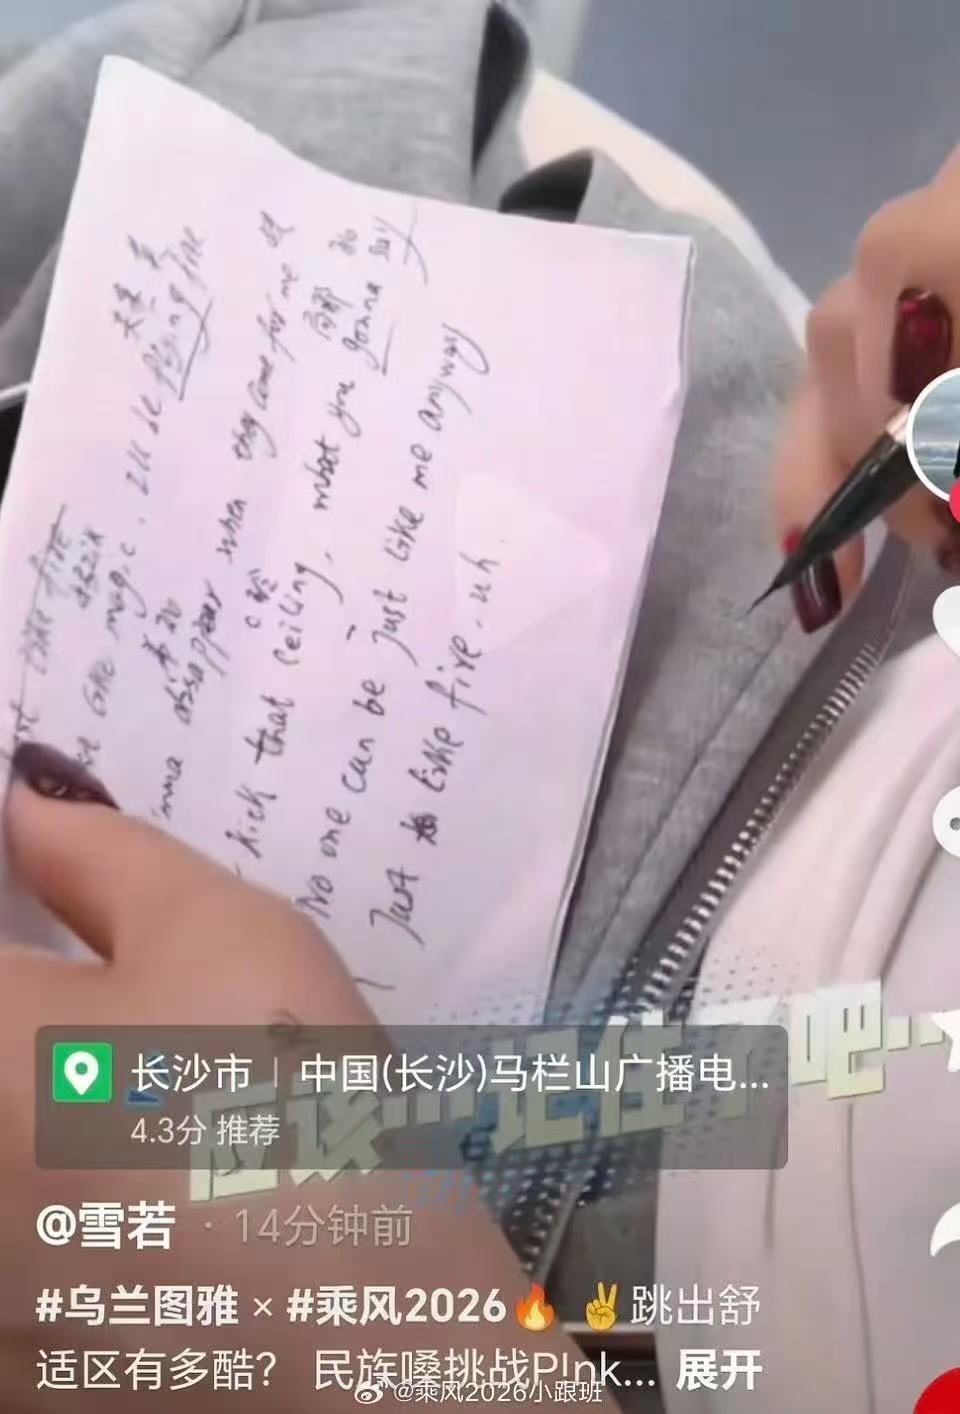 just like fire
like magic. I'll be flying free
夫来 芙
imma disappear when they come for me
kick that ceiling, what you gonna say
No one can be just like me anyway
Just like fire. uh.
应该····记住了吧···
长沙市 | 中国(长沙)马栏山广播电...
4.3分 推荐
@雪若 · 14分钟前
#乌兰图雅 × #乘风2026🔥 ✌️跳出舒
适区有多酷? 民族嗓挑战P!nk... 展开
@乘风2026小跟班